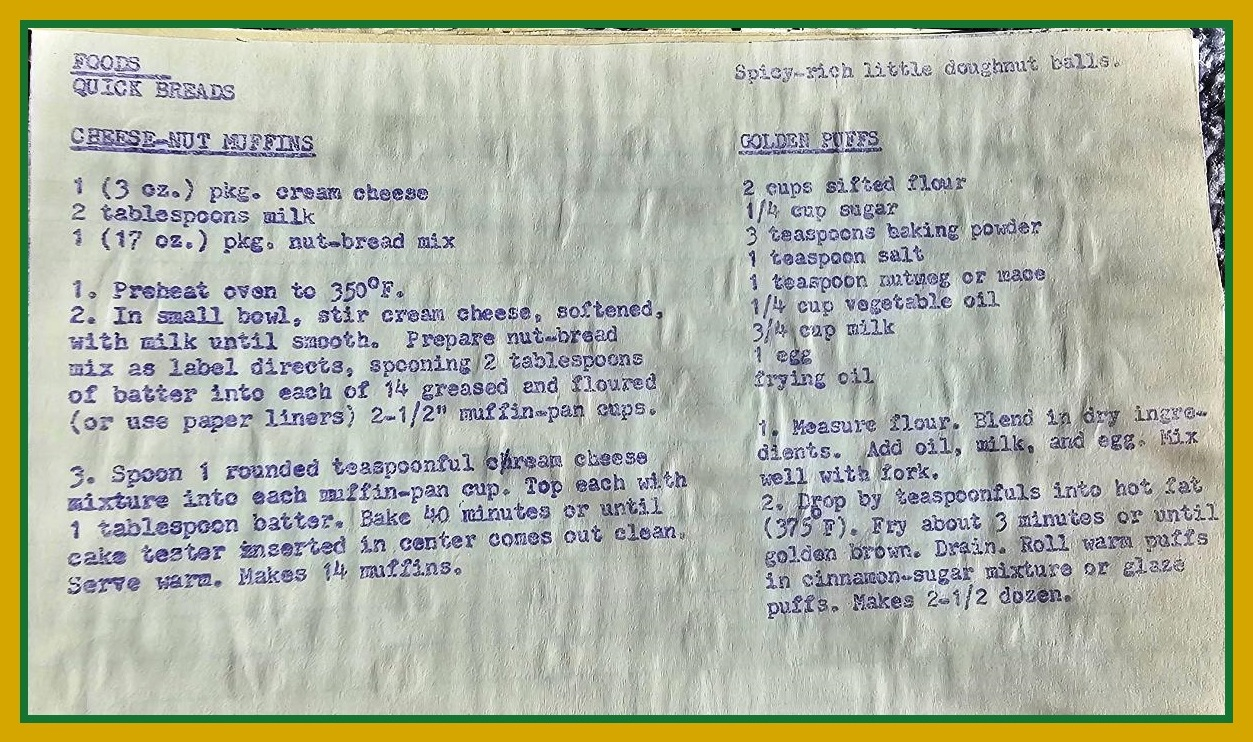 FOODS
QUICK BREADS
CHEESE-NUT MUFFINS
1 (3 oz.) pkg. cream cheese
2 tablespoons milk
1 (17 oz.) pkg. nut-bread mix
1. Preheat oven to 350°F.
2. In small bowl, stir cream cheese, softened,
with milk until smooth. Prepare nut-bread
mix as label directs, spooning 2 tablespoons
of batter into each of 14 greased and floured
(or use paper liners) 2-1/2" muffin-pan cups.
3. Spoon 1 rounded teaspoonful cream cheese
mixture into each muffin-pan cup. Top each with
1 tablespoon batter. Bake 40 minutes or until
cake tester inserted in center comes out clean.
Serve warm. Makes 14 muffins.
Spicy-rich little doughnut balls.
GOLDEN PUFFS
2 cups sifted flour
1/4 cup sugar
3 teaspoons baking powder
1 teaspoon salt
1 teaspoon nutmeg or mace
1/4 cup vegetable oil
3/4 cup milk
1 egg
frying oil
1. Measure flour. Blend in dry ingre-
dients. Add oil, milk, and egg. Mix
well with fork.
2. Drop by teaspoonfuls into hot fat
(375°F). Fry about 3 minutes or until
golden brown. Drain. Roll warm puffs
in cinnamon-sugar mixture or glaze
puffs. Makes 2-1/2 dozen.